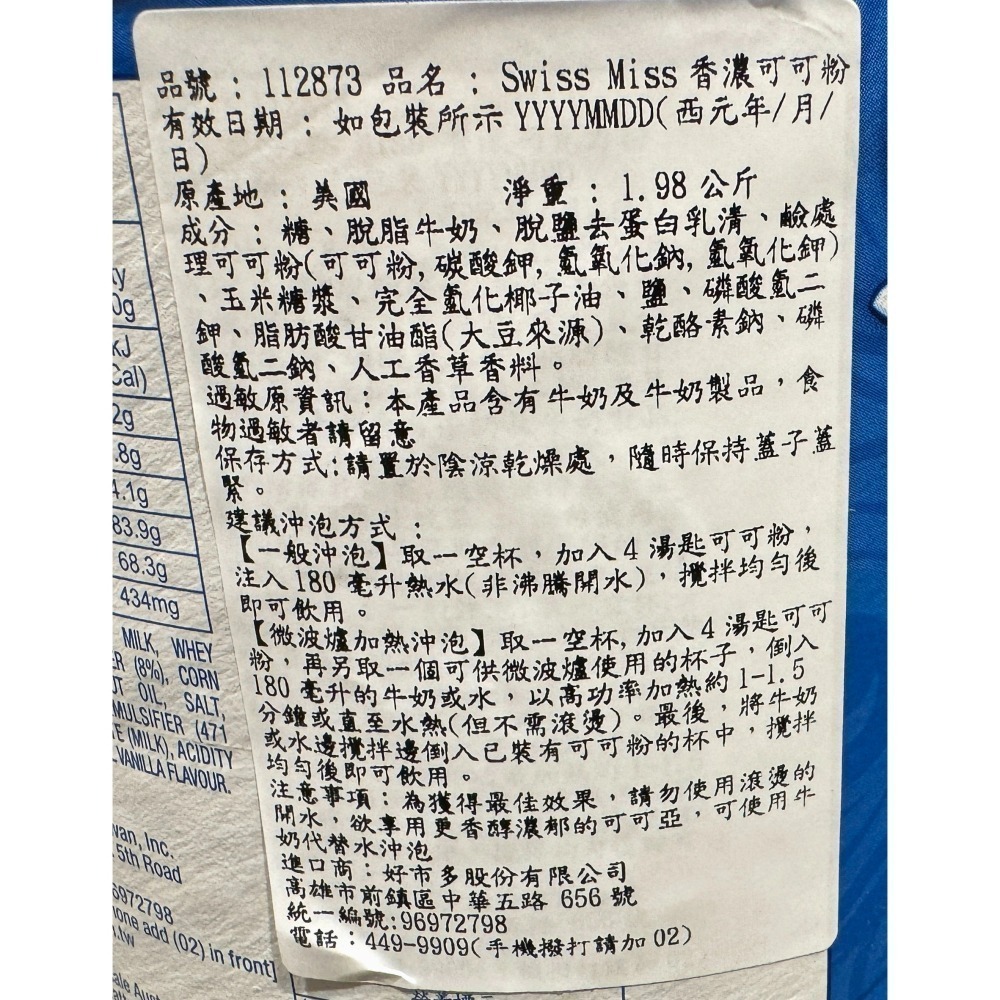 品號：112873 品名：Swiss Miss 香濃可可粉
有效日期：如包裝所示 YYYYMMDD(西元年/月/
日)
原產地：美國 淨重：1.98 公斤
成分：糖、脫脂牛奶、脫鹽去蛋白乳清、鹼處
理可可粉(可可粉,碳酸鉀,氫氧化鈉,氫氧化鉀)
、玉米糖漿、完全氫化椰子油、鹽、磷酸氫二
鉀、脂肪酸甘油酯(大豆來源)、乾酪素鈉、磷
酸氫二鈉、人工香草香料。
過敏原資訊：本產品含有牛奶及牛奶製品，食
物過敏者請留意
保存方式:請置於陰涼乾燥處，隨時保持蓋子蓋
緊。
建議沖泡方式：
【一般沖泡】取一空杯，加入 4 湯匙可可粉，
注入 180 毫升熱水(非沸騰開水)，攪拌均勻後
即可飲用。
【微波爐加熱沖泡】取一空杯,加入 4 湯匙可可
粉，再另取一個可供微波爐使用的杯子，倒入
180 毫升的牛奶或水，以高功率加熱約 1-1.5
分鐘或直至水熱(但不需滾燙)。最後，將牛奶
或水邊攪拌邊倒入已裝有可可粉的杯中，攪拌
均勻後即可飲用。
注意事項：為獲得最佳效果，請勿使用滾燙的
開水，欲享用更香醇濃郁的可可亞，可使用牛
奶代替水沖泡
進口商：好市多股份有限公司
高雄市前鎮區中華五路 656 號
統一編號:96972798
電話：449-9909(手機撥打請加 02)
0g
kJ
Cal)
2g
.8g
4.1g
83.9g
68.3g
434mg
MILK, WHEY
(8%), CORN
OIL, SALT,
EMULSIFIER (471
(MILK), ACIDITY
VANILLA FLAVOUR.
wan, Inc.
5th Road
6972798
add (02) in front]
.tw